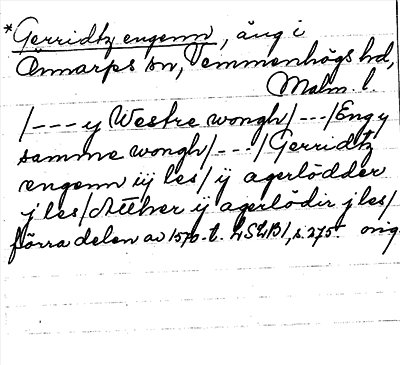 *Gerridtz engenn, äng i
Önnarps sn, Vemmenhögs hd,
Malm. l.
/---y Westre wongh/---/Eng y
samme wongh/---/Gerridtz
engenn iij les/ ij agerlödder
j les/Atther ij agerlödir j les/
förra delen av 1570-t. LSLB1, s. 275. orig.